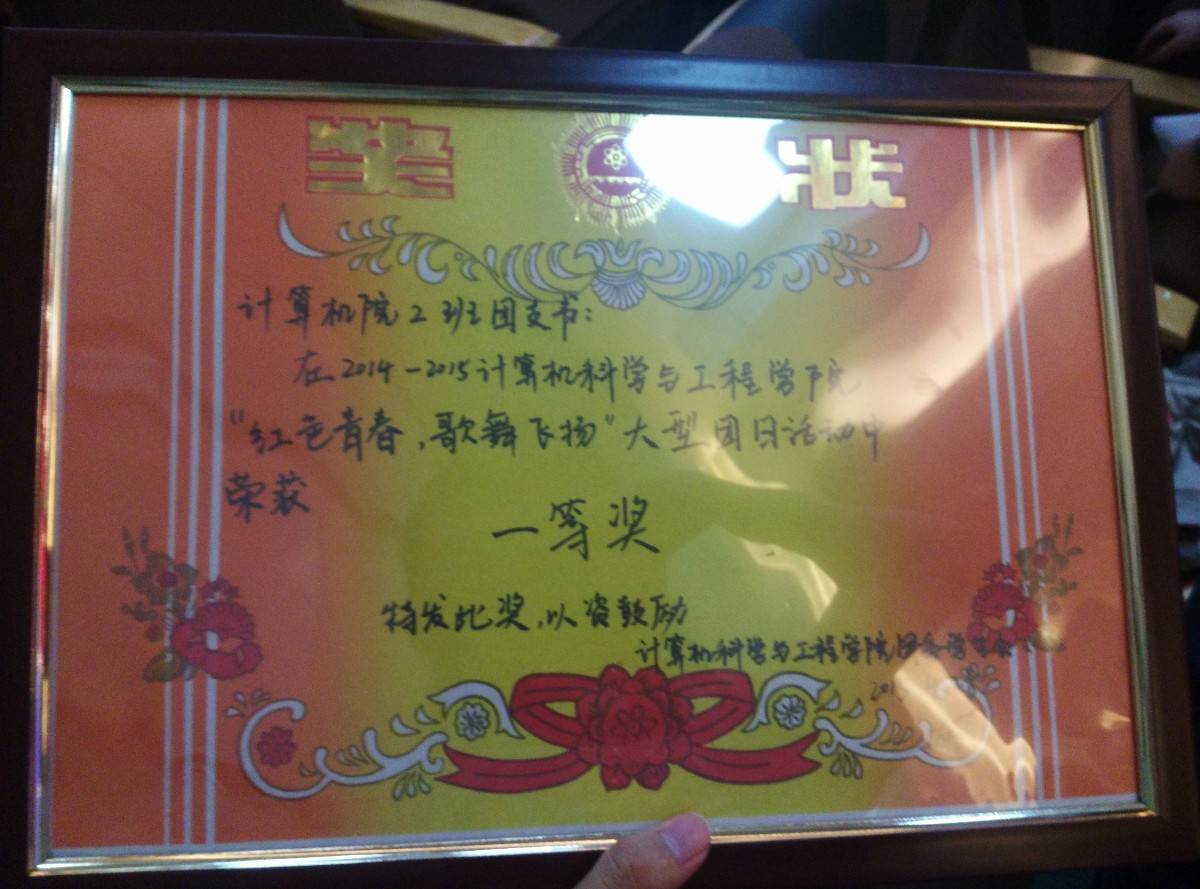 奖 状
计算机院2班团支书：
在2014-2015计算机科学与工程学院
“红色青春，歌舞飞扬”大型团日活动中
荣获
一等奖
特发此奖，以资鼓励
计算机科学与工程学院团委学生会